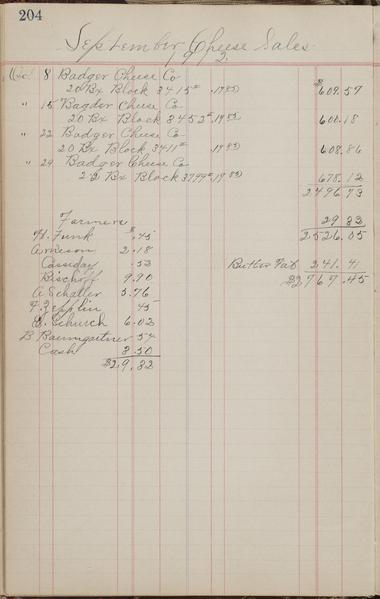 204
September Cheese Sales
Oct. 8 Badger Cheese Co
20 Bx Block 3415# .17 85 $609.57
" 15 Bagder Cheese Co
20 Bx Block 3452# .19 85 600.18
" 22 Badger Cheese Co
20 Bx Block 3411# .17 85 608.86
" 29 Badger Cheese Co
22 Bx Block 3799# .17 85 678.12
2496.73
29 32
Farmers 2526.05
H. Funk $ .45
Arneson 2.18
Cassiday .53 Butter Fat 241.41
Bischoff 9.90 $2767.45
A Schaller 5.76
F. Zepplin 45
E. Schurch 6.02
B Baumgartner 54
Cash 3.50
$29.32